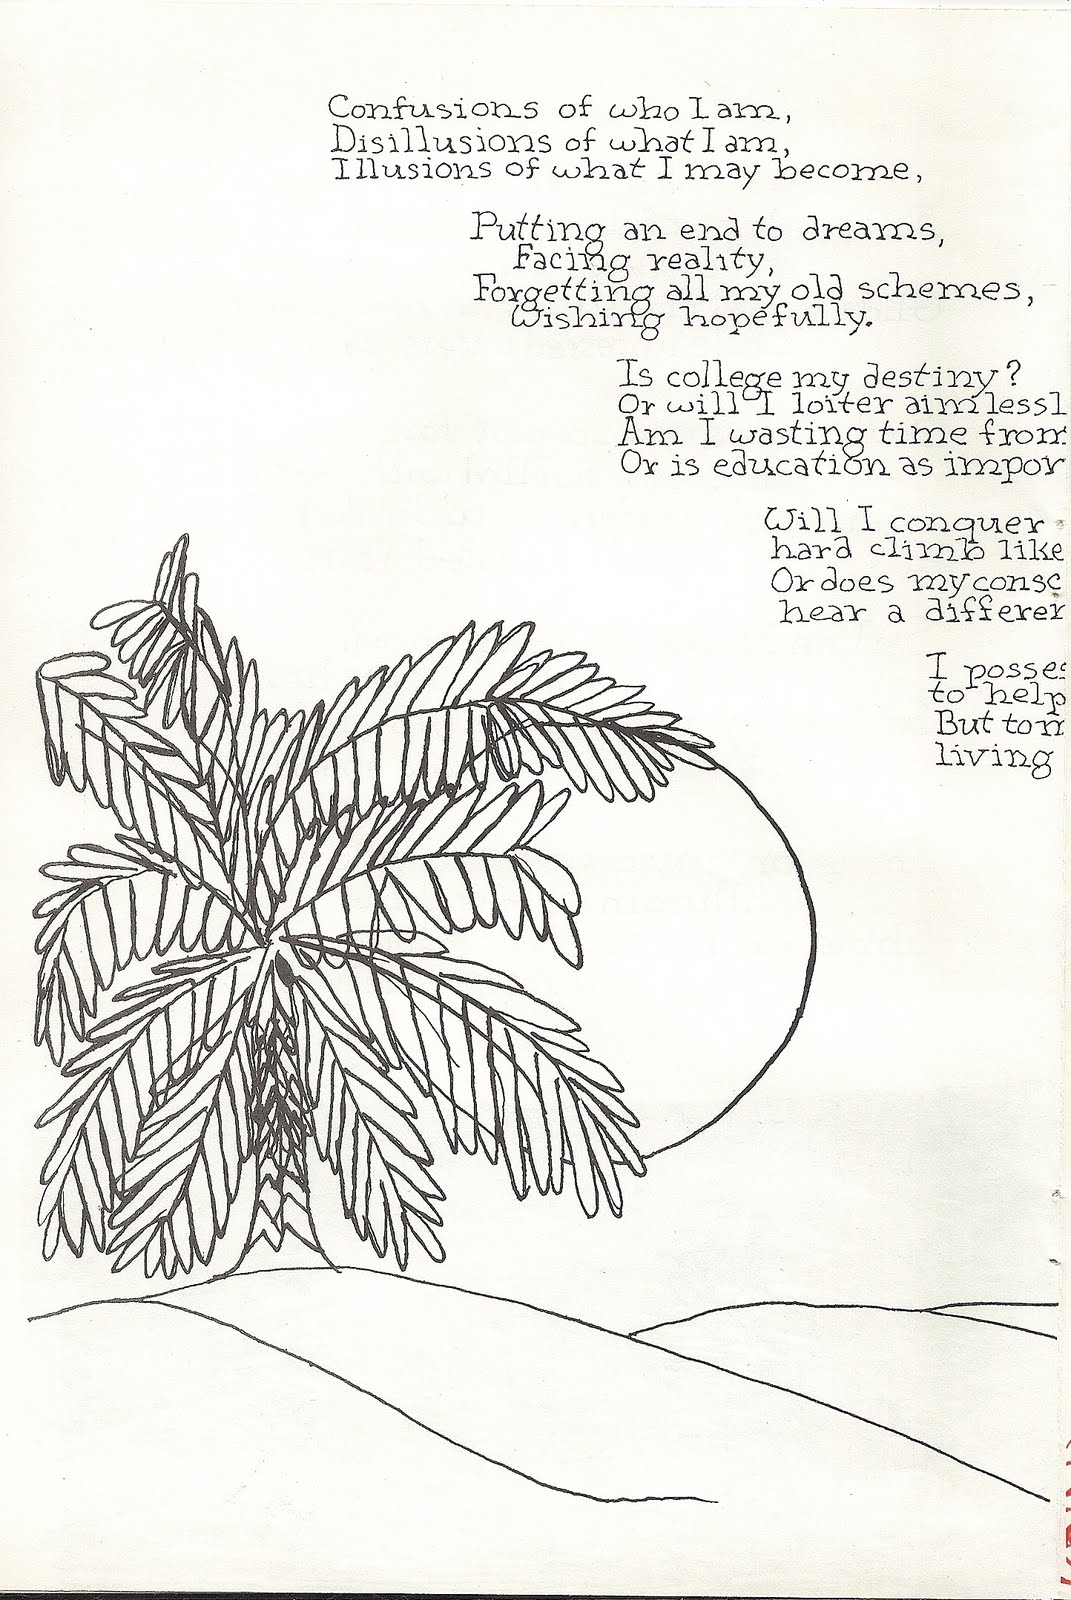 Confusions of who I am,
Disillusions of what I am,
Illusions of what I may become,
Putting an end to dreams,
Facing reality,
Forgetting all my old schemes,
Wishing hopefully.
Is college my destiny?
Or will I loiter aimlessl
Am I wasting time from
Or is education as impor
Will I conquer
hard climb like
Or does my consc
hear a differen
I posses
to help
But tom
living